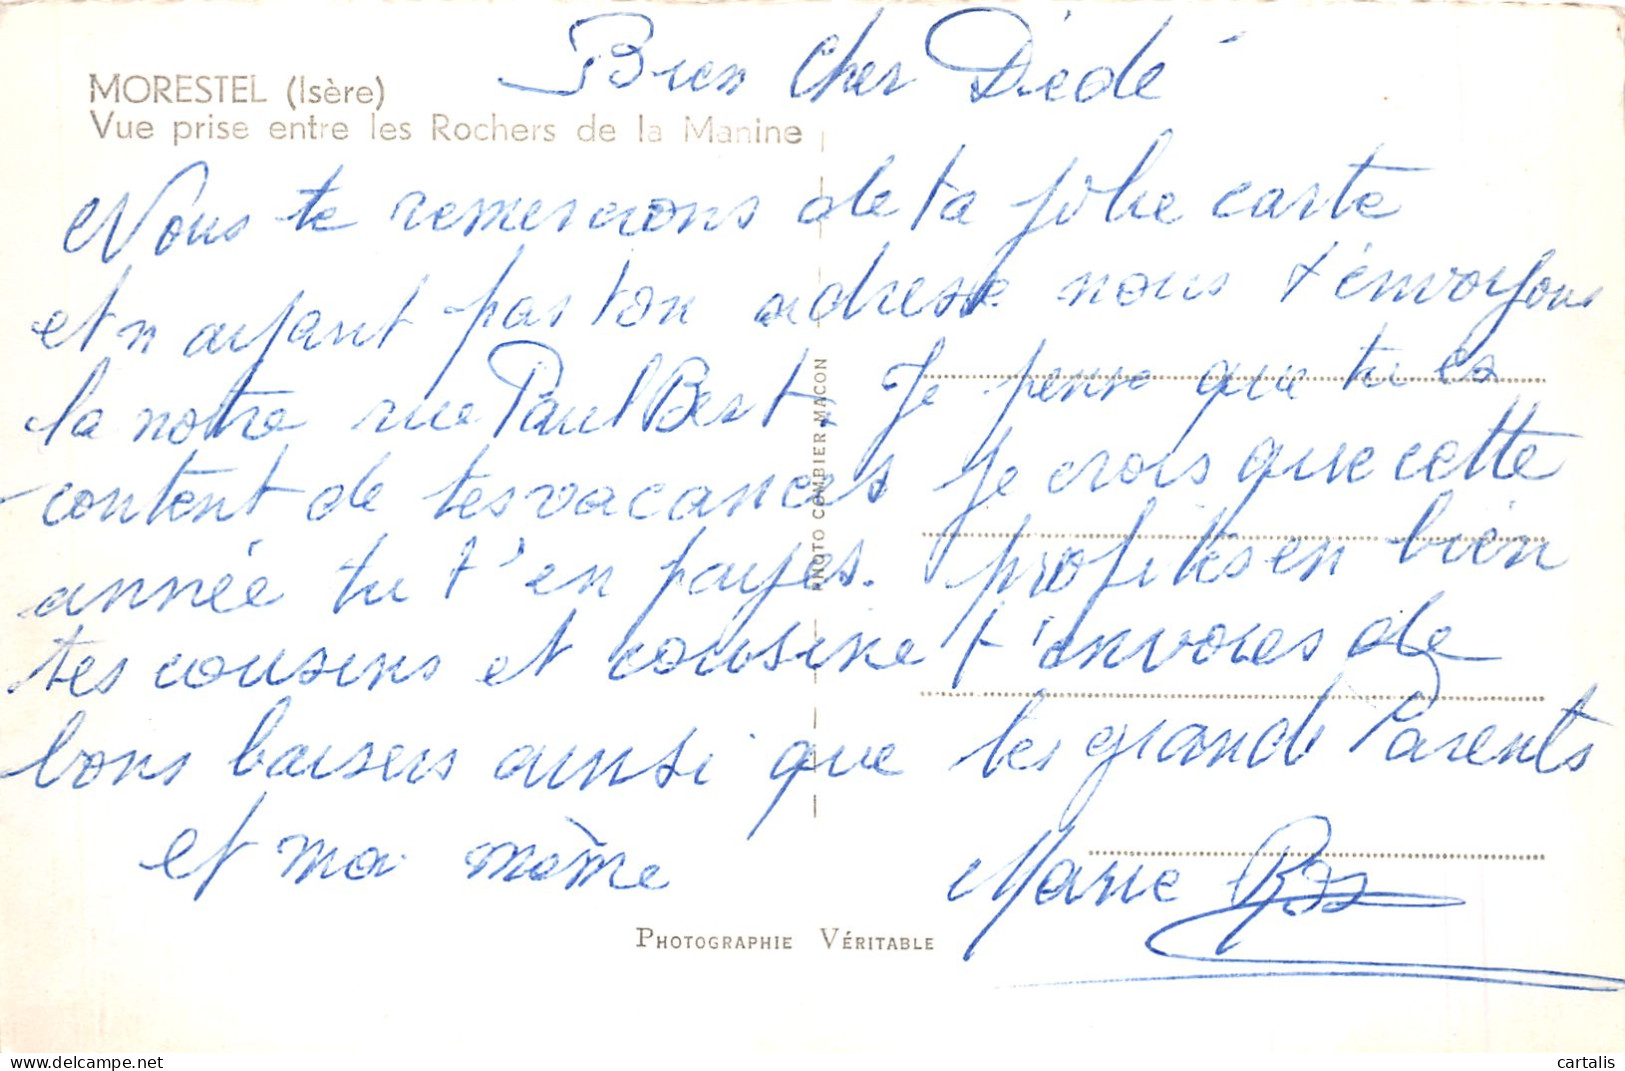 Bien Cher Dédé
MORESTEL (Isère)
Vue prise entre les Rochers de la Manine
Nous te remercions de ta jolie carte
et n ayant pas ton adresse nous t'envoyons
la notre rue Paul Bert. Je pense que tu es
content de tes vacances Je crois que cette
année tu t'en payes. profites en bien
tes cousins et cousine t'envoies de
bons baisers ainsi que tes grands Parents
et moi même
Marie
PHOTO COMBIER MACON
PHOTOGRAPHIE VÉRITABLE
https://www.delcampe.net
cartalis